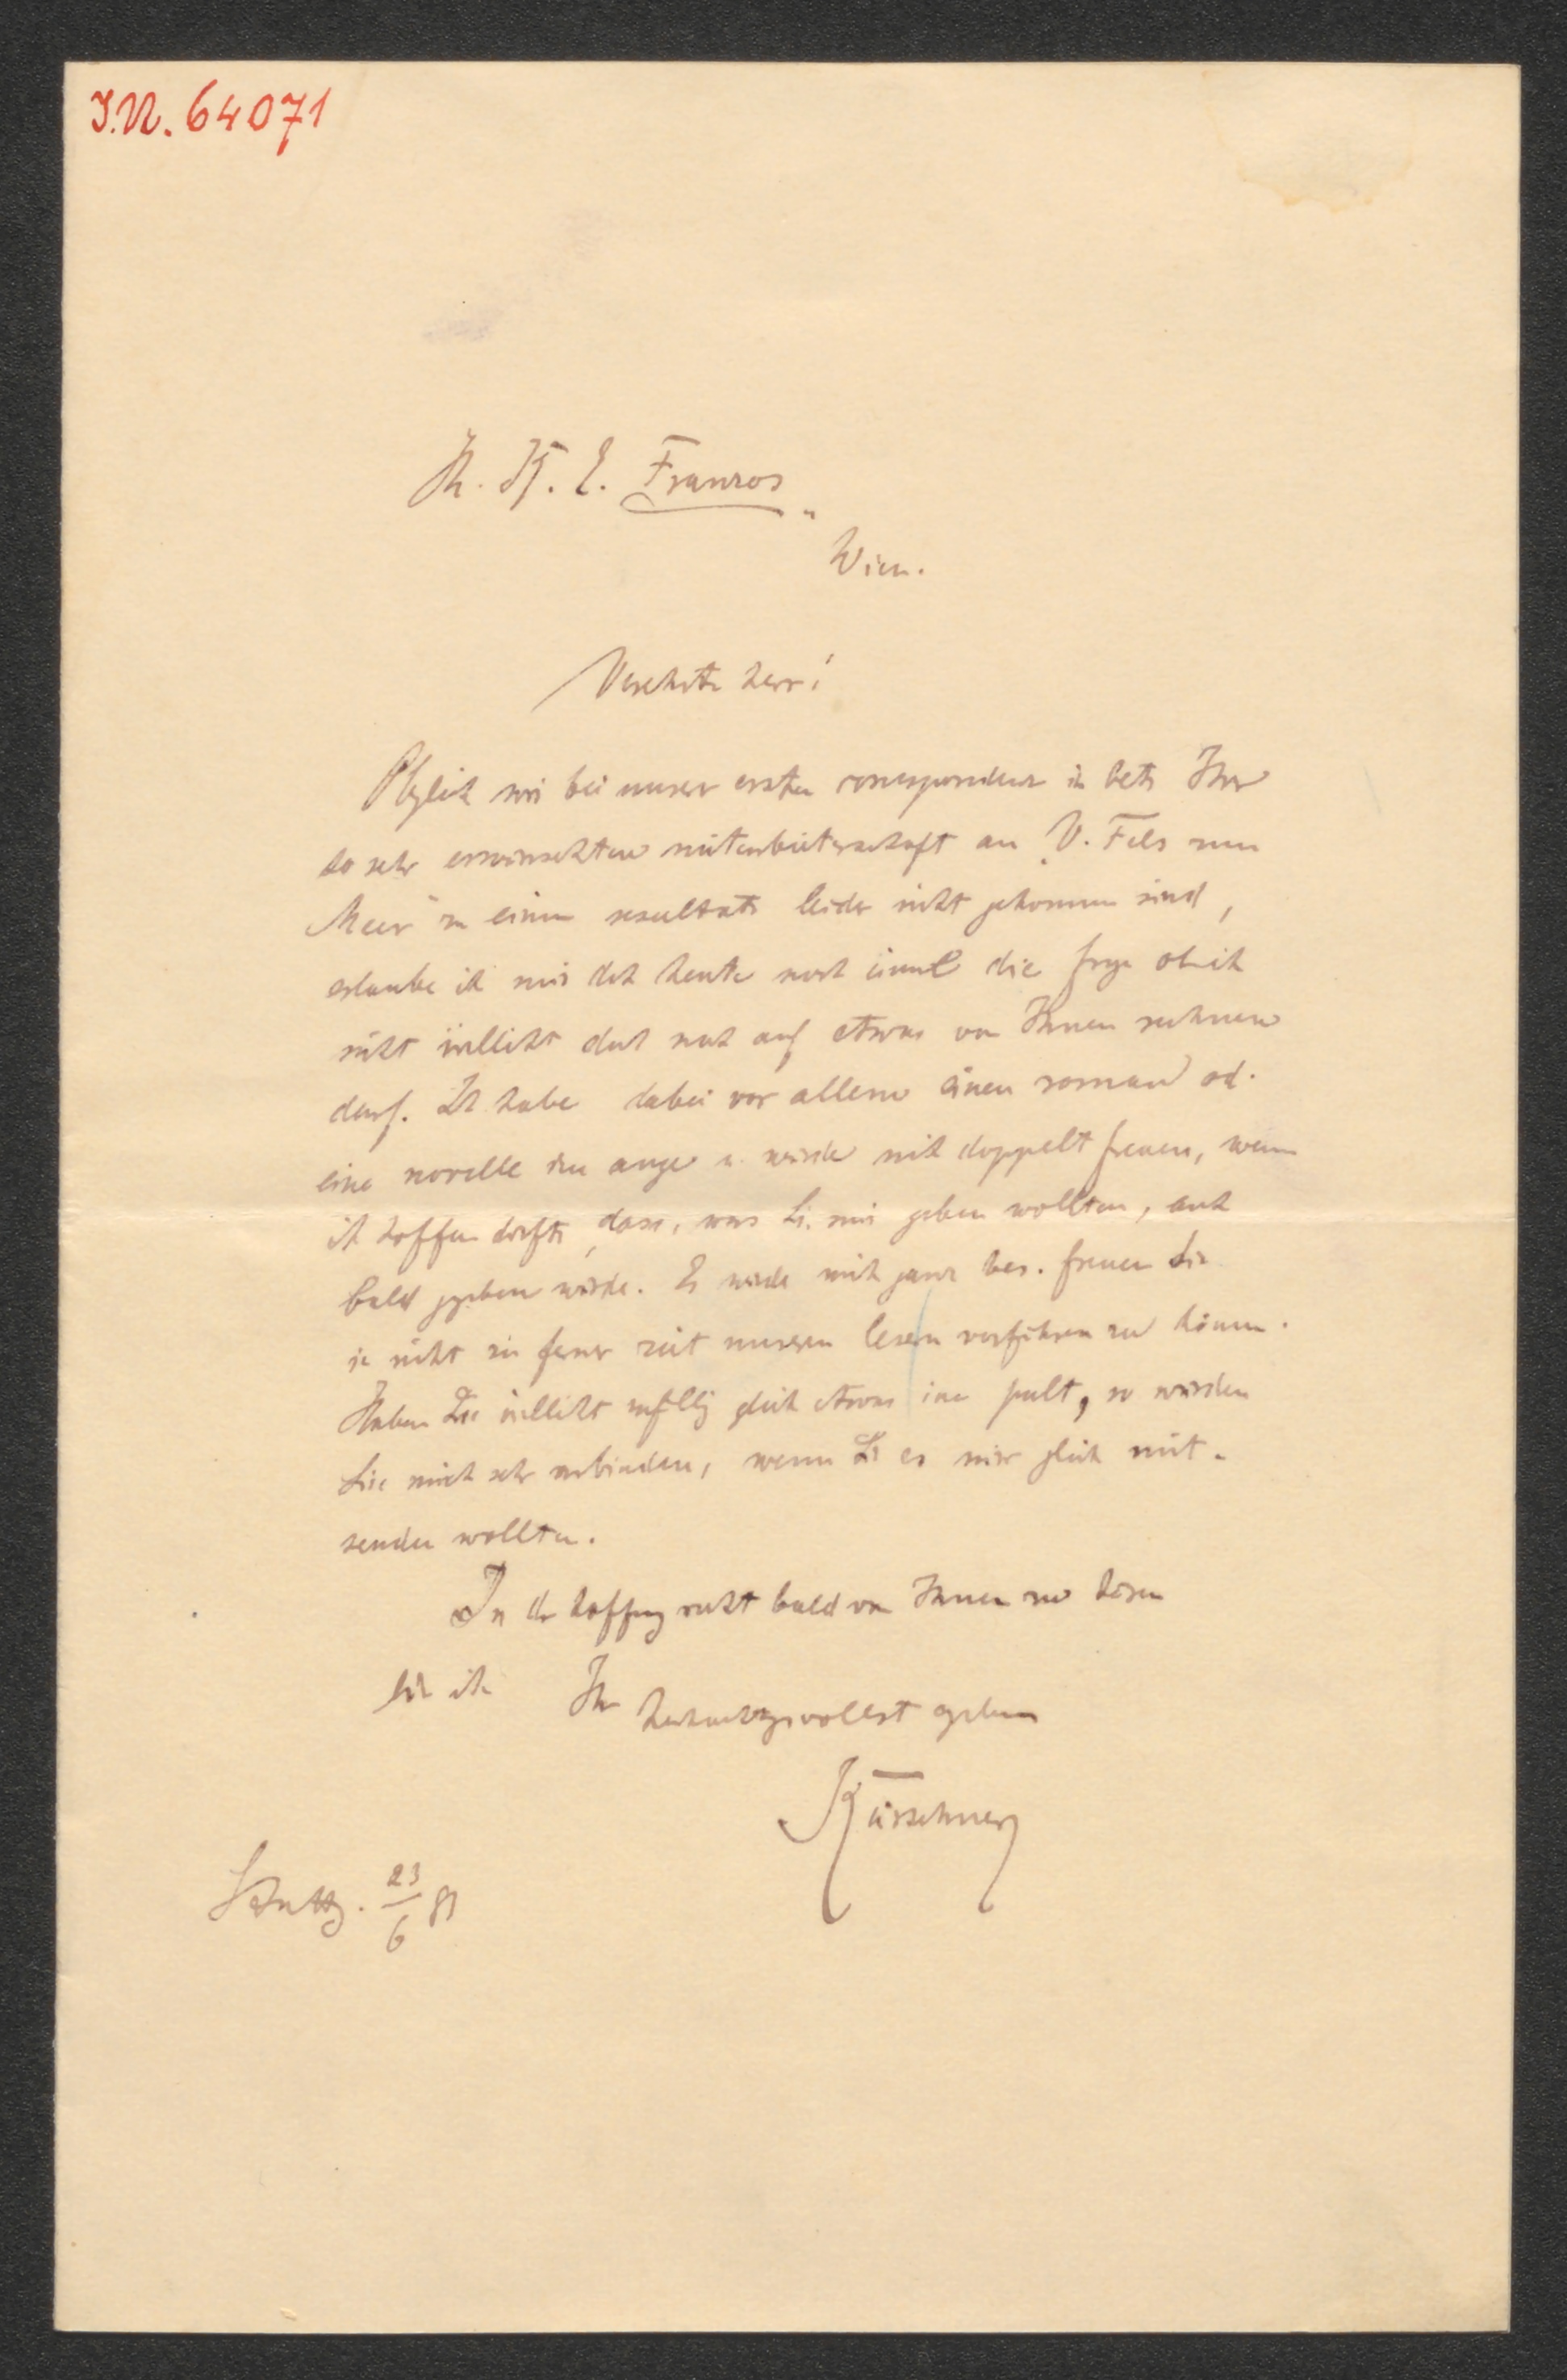 I.N. 64071
H. K. E. Franzos
Wien.
Verehrter herr!
Obgleich wir bei unserer ersten correspondenz in betr. Ihrer
so sehr erwünschten mitarbeiterschaft an „V. Fels zum
Meer" zu einem resultate leider nicht gekommen sind,
erlaube ich mir doch heute noch einmal die frage ob ich
nicht villeicht doch noch auf etwas von Ihnen rechnen
darf. Ich habe dabei vor allem einen roman od.
eine novelle im auge u. würde mich doppelt freuen, wenn
ich hoffen dürfte, dass, was Sie mir geben wollten, auch
bald gegeben würde. Es würde mich ganz bes. freuen Sie
in nicht zu ferner zeit unseren lesern vorführen zu können.
Haben Sie villeicht zufällig gleich etwas im pult, so würden
Sie mich sehr verbinden, wenn Sie es mir gleich mit-
senden wollten.
In der hoffnung recht bald von Ihnen zu hören
bin ich Ihr hochachtungsvollst ergebener
Kürschner
Stuttg. 23/6 81